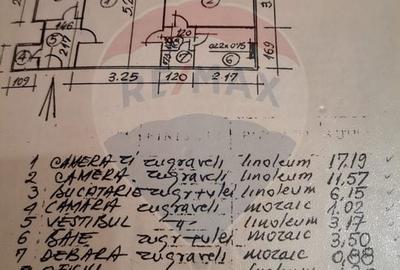 146
5
217
4
120
7
6
3.25
120
2.17
169
109
RE/MAX
1 CAMERA zi zugraveli linoleum 17.19
2 CAMERA zugraveli linoleum 11.57
3 BUCATARIE zugr+ulei linoleum 6,15
4 CAMARA zugraveli mozaic 1.02
5 VESTIBUL -"- linoleum 3,17
6 BAIE zugr+ulei mozaic 3,50
7 DEBARA zugraveli mozaic 0,88